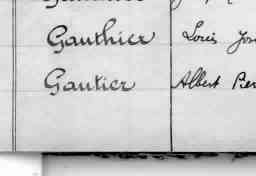 Gauthier Louis Jos
Gautier Albert Pier